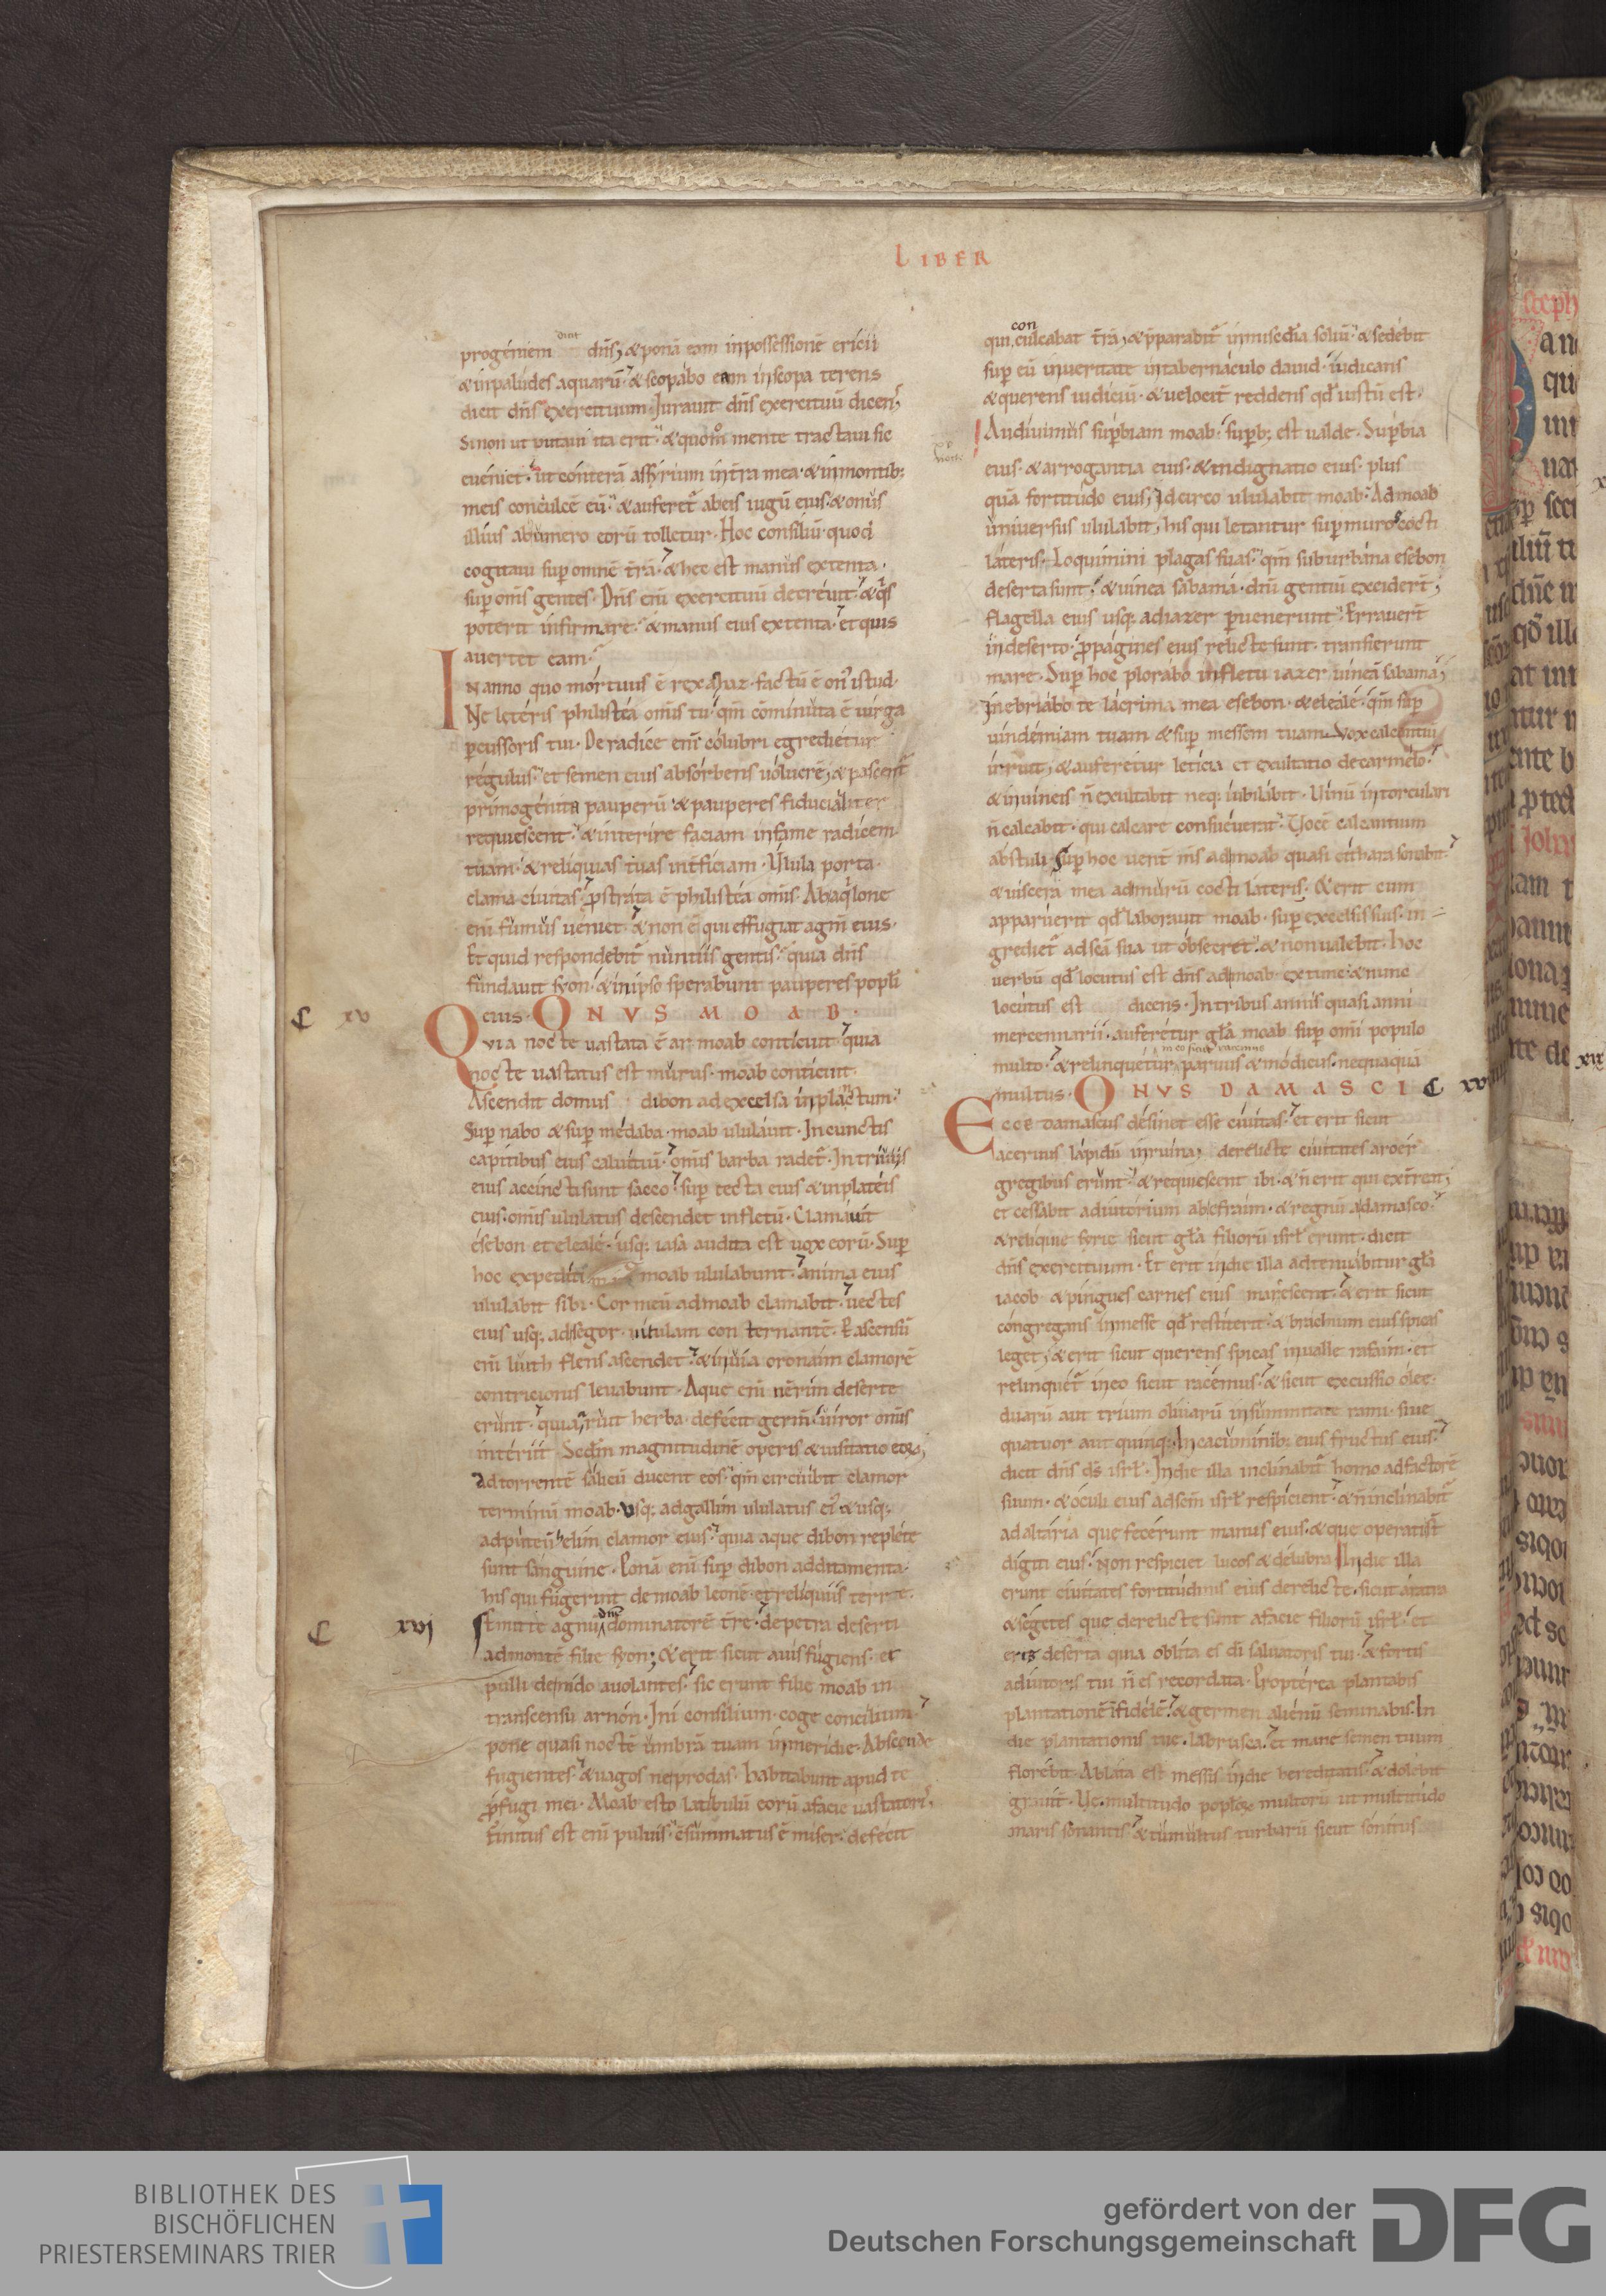 LIBER
progeniem dicit dñs, & ponã eam in possessione ericii
& in paludes aquarũ. & scopabo eam in scopa terens
dicit dñs exercituum. Iuravit dñs exercituũ dicens,
Si non ut putavi ita erit. & quom̊ mente tractavi sic
eveniet. ut conterã assyrium in t̃ra mea. & in montib;
meis conculcẽ eũ. & auferet̃ ab eis iugũ eius. & onus
illius ab umero eorũ tolletur. Hoc consiliũ quod
cogitavi sup omnẽ t̃rã. & hec est manus extenta.
sup oms gentes. Dñs eni exercituũ decrevit. & q̇s
poterit infirmare. & manus eius extenta. et quis
avertet eam.
IN anno quo mortuus ẽ rex achaz. factũ ẽ on istud.
Ne leteris philistea omis tu. qm̃ cõminuta ẽ virga
pcussoris tui. De radice eni colubri egredietur
regulus. et semen eius absorbens volucrẽ, & pascent̃
primogenita pauperũ & pauperes fiducialiter
requiescent. & interire faciam in fame radicem
tuam. & reliquias tuas intficiam. Ulula porta.
clama civitas. pstrata ẽ philistea omis. Ab aq̇lone
eni fumus veniet. & non ẽ qui effugiat agm̃ eius.
Et quid respondebit̃ nuntiis gentis. quia dñs
fundavit syon. & in ipso sperabunt pauperes popli
C xv
eius. ONVS MOAB.
QVIA nocte vastata ẽ ar moab conticuit. quia
nocte vastatus est murus. moab conticuit.
Ascendit domus dibon ad excelsa in planctum.
Sup nabo & sup medaba. moab ululavit. In cunctis
capitibus eius calvitiũ. omis barba radet̃. In triviis
eius accincti sunt sacco. sup tecta eius & in plateis
eius. omis ululatus descendet in fletũ. Clamavit
esebon et eleale. usq; iasa audita est vox eorũ. Sup
hoc expediti moab ululabunt. anima eius
ululabit sibi. Cor meũ ad moab clamabit. vectes
eius usq; ad segor. vitulam con ternantẽ. P ascensũ
eni luith flens ascendet. & in via oronaim clamorẽ
contricionis levabunt. Aque eni nẽrim deserte
erunt. quia aruit herba. defecit germ̃. viror omis
interiit. Scdm magnitudinẽ operis & visitatio eorũ,
ad torrentẽ salicũ ducent eos. qm̃ circuibit clamor
terminũ moab. Usq; ad gallim ululatus ei. & usq;
ad puteũ helim clamor eius. quia aque dibon replete
sunt sanguine. Ponã eni sup dibon additamenta.
his qui fugerint de moab leonẽ. et reliquiis terre.
C xvj
Emitte agnũ dñe dominatorẽ t̃re. de petra deserti
ad montẽ filie syon; & erit sicut avis fugiens. et
pulli de nido avolantes. sic erunt filie moab in
transcensu arnon. Ini consilium. coge concilium.
pone quasi noctẽ umbrã tuam in meridie. Absconde
fugientes. & vagos ne prodas. Habitabunt apud te
pfugi mei. Moab esto latibulũ eorũ a facie vastatoris,
Finitus est eni pulvis. csummatus ẽ miser. defecit
qui conculcabat t̃rã, & pparabit̃ in mis̃cdia soliũ. & sedebit
sup eũ in veritate in tabernaculo david. iudicans
& querens iudiciũ. & velocit̃ reddens qd iustũ est.
Audivimus supbiam moab. supb; est valde. Supbia
eius. & arrogantia eius. & indignatio eius. plus
quã fortitudo eius, Idcirco ululabit moab. Ad moab
universus ululabit, his qui letantur sup muros cocti
lateris. Loquimini plagas suas. qm̃ suburbana esebon
deserta sunt. & vinea sabama. dni gentiũ excidert̃,
flagella eius usq; ad iazer pvenerunt. Erravert̃
in deserto. ppagines eius relicte sunt. transierunt
mare. Sup hoc plorabo in fletu iazer vineã sabama,
Inebriabo te lacrima mea esebon. & eleale. qm̃ sup
vindemiam tuam & sup messem tuam. vox calcantiũ
irruit, & auferetur leticia et exultatio de carmelo.
& in vineis ñ exultabit neq; iubilabit. Vinũ in torculari
ñ calcabit. qui calcare consueverat. Vocẽ calcantium
abstuli. Sup hoc vent̃ ms ad moab quasi cithara sonabit.
& viscera mea ad murũ cocti lateris. & erit cum
apparuerit qd laboravit moab. sup excelsis suis. in=
grediet̃ ad scã sua ut obsecret. & non valebit. Hoc
verbũ qd locutus est dñs ad moab. ex tunc. & nunc
locutus est dicens. In tribus annis quasi anni
mercennarii. auferetur glã moab sup omi populo
multo. & relinquetur in eo sicut racemus parvus & modicus. nequaquã
multus. ONVS DAMASCI C xvii
ECCE damascus desinet esse civitas. et erit sicut
acervus lapidũ in ruina, derelicte civitates aroer
gregibus erunt. & requiescent ibi. & ñ erit qui ext̃reat,
et cessabit adiutorium ab efraim. & regnũ a damasco.
& reliquie syrie sicut glã filiorũ isrl erunt. dicit
dñs exercituum. Et erit in die illa adtenuabitur glã
iacob. & pingues carnes eius marescent. & erit sicut
congregans in messe qd restiterit. & brachium eius spicas
leget, & erit sicut querens spicas in valle rafaim. et
relinquet̃ in eo sicut racemus. & sicut excussio olee.
duarũ aut trium olivarũ in summitate rami. sive
quatuor aut quinq;. In cacuminib; eius fructus eius.
dicit dñs ds isrl. In die illa inclinabit̃ homo ad factorẽ
suum. & oculi eius ad scm isrl respicient. & ñ inclinabit̃
ad altaria que fecerunt manus eius. & que operati st̃
digiti eius. Non respiciet lucos & delubra. In die illa
erunt civitates fortitudinis eius derelicte. sicut aratra
& segetes que derelicte sunt a facie filiorũ isrl. et
eris deserta quia oblita es di salvatoris tui. & fortis
adiutoris tui ñ es recordata. Propterea plantabis
plantationẽ fidelẽ. & germen alienũ seminabis. In
die plantationis tue. labrusca. et mane semen tuum
florebit. Ablata est messis in die hereditatis. & dolebit
gravit̃. Ve multitudo poplorũ multorũ ut multitudo
maris sonantis. & tumultus turbarũ sicut sonitus
BIBLIOTHEK DES
BISCHÖFLICHEN
PRIESTERSEMINARS TRIER
gefördert von der
Deutschen Forschungsgemeinschaft
DFG